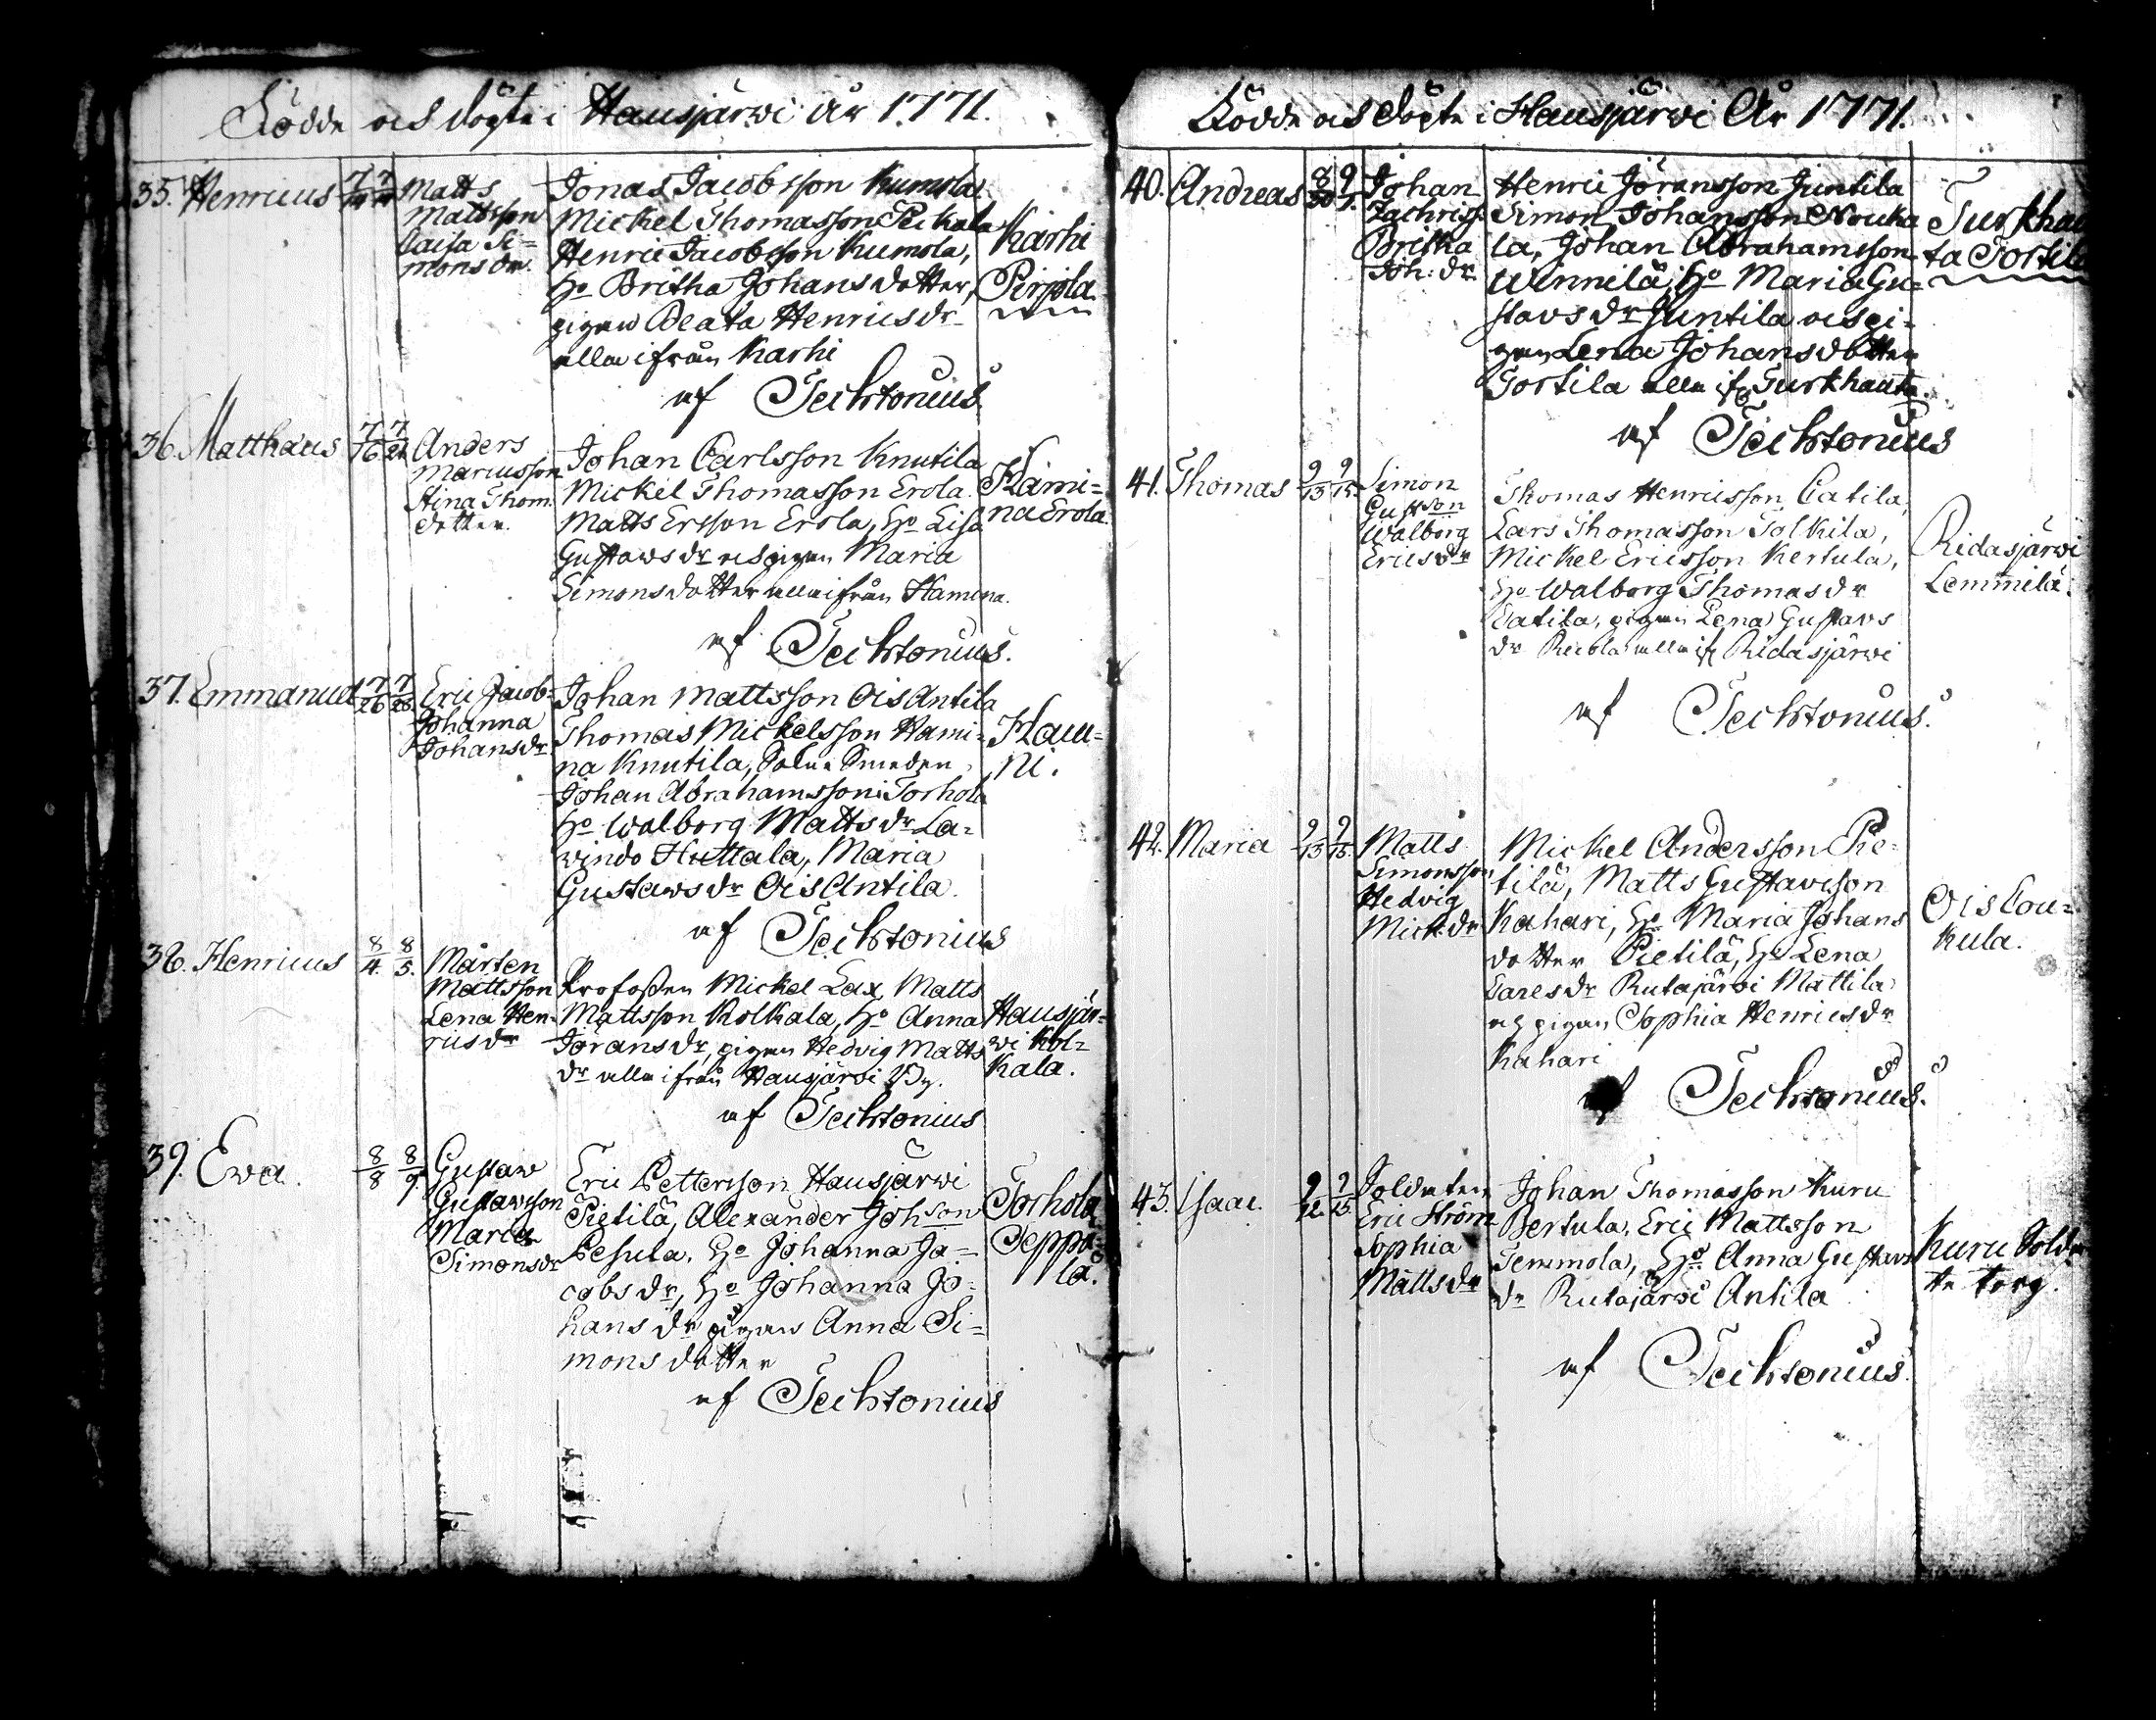 Födde och döpte i Hausjärwi År 1771.
35. Henricus 7/14 7/14 Matts Mattsson Caisa Si=monsdr.
Jonas Jacobsson Kumola
Mickel Thomasson Peikala
Henric Jacobsson Kumola,
Ho Britha Johans dotter,
pigan Beata Henricsdr
alla ifrån Karhi
af Techtonius
Karhi
Pirjola.
36. Matthæus 7/16 7/21 Anders Mariusson Stina Thom. dotter.
Johan Carlsson Knutila
Mickel Thomasson Erola.
Matts Ersson Erola, Ho Lisa
Gustaws dr och pigan Maria
Simonsdotter alla ifrån Hamina.
af Techtonius.
Hami=
na Erola.
37. Emmanuel 7/26 7/28. Eric Jacob- Johanna Johansdr
Johan Mattsson Ois Antila
Thomas Mickelsson Hami=
na Knutila, Sokne Smeden
Johan Abrahamsson i Torhola
Ho Walborg Matts dr La=
windo Huttala, Maria
Gustaws dr Ois Antila.
af Techtonius
Hau=
ni.
38. Henricus 8/4. 8/5. Mårten Mattsson Lena Hen=ricsdr
Profossen Mickel Lax, Matts
Mattsson Kolkala, Ho Anna
Jörans dr, pigan Hedvig Matts
dr alla ifrån Hausjärvi By.
af Techtonius
Hausjär=
wi Kol=
kala.
39. Ewa. 8/8 8/9. Gustaw Gustawsson Maria Simonsdr
Eric Pettersson Hausjärwi
Pietilä, Alexander Johsson
Pesula, Ho Johanna Ja=
cobs dr, Ho Johanna Jo=
hans dr pigan Anna Si=
mons dotter
af Techtonius
Torhola
Seppä=
lä.
Födde och döpte i Hausjärwi År 1771.
40. Andreas 8/30 9/1. Johan Zachriss. Britha Joh: dr
Henric Jöransson Juntila
Simon Johansson Nouka
la, Johan Abrahamsson
Wennilä, Ho Maria Gu=
stavs dr Juntila och pi=
gan Lena Johans dotter
Tortila alla ifr Turkhauta.
af Techtonius
Turkhau
ta Tortila
41. Thomas 9/13 9/15. Simon Gustson Walborg Ericsdr
Thomas Henricsson Catila,
Lars Thomasson Tolkila,
Mickel Ericsson Kertula,
Ho Walborg Thomas dr
Catila, pigan Lena Gustavs
dr alla ifr Ridasjärwi
af Techtonius.
Ridasjärwi
Lemmilä.
42. Maria 9/13 9/15. Matts Simonsson Hedvig Mick.dr
Mickel Andersson Pie=
tilä, Matts Gustavsson
Kahari, Ho Maria Johans
dotter Pietilä, Ho Lena
Larsdr Rutajärvi Mattila
och pigan Sophia Henricsdr
Kahari
af Techtonius.
Ois Lou=
kula.
43. Isaac. 9/12. 9/15 Soldaten Eric Ström Sophia Mattsdr
Johan Thomasson Kuru
Bertula, Eric Mattsson
Temmola, Ho Anna Gustavs
dr Rutajärvi Antila
af Techtonius.
Kuru Solda
te torp.